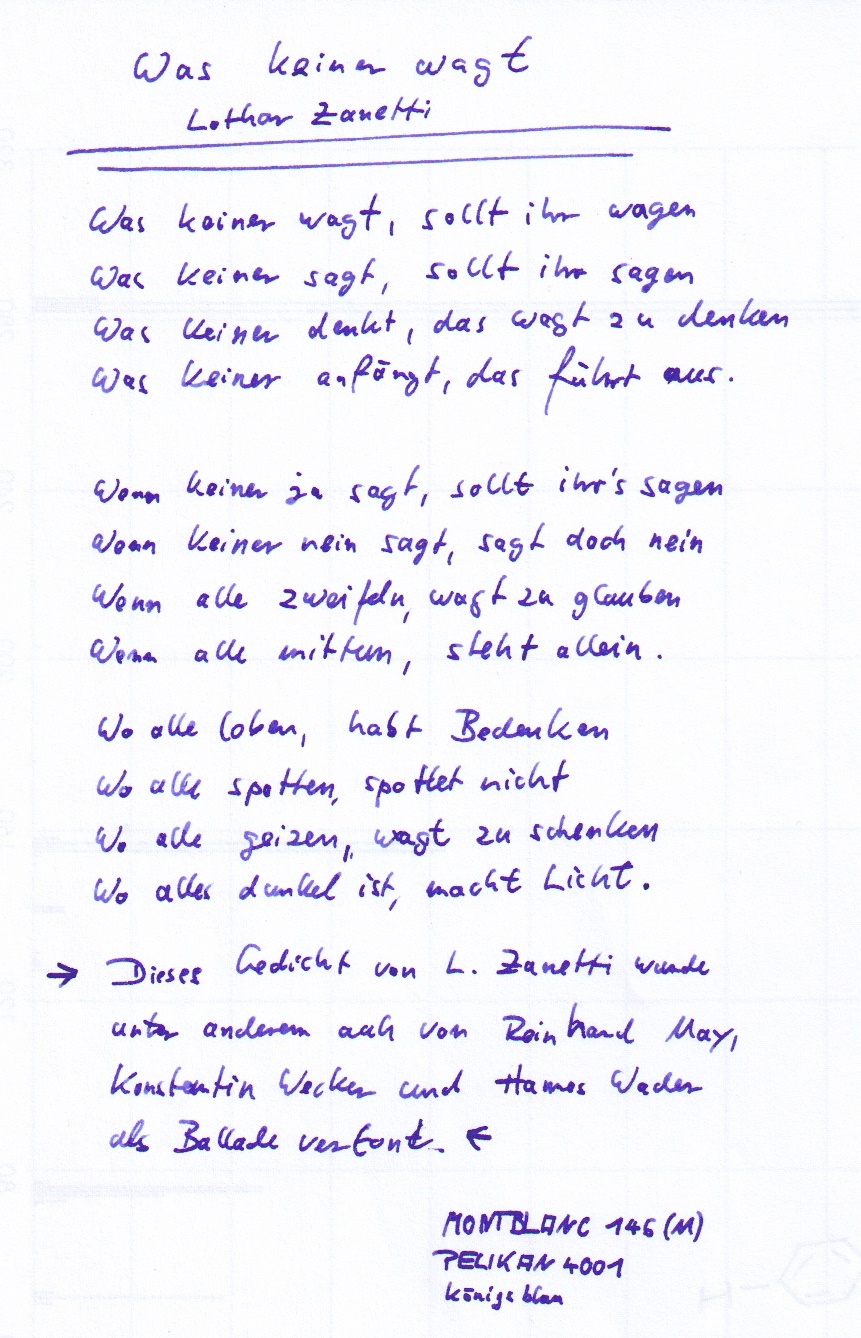 Was keiner wagt
Lothar Zanetti
Was keiner wagt, sollt ihr wagen
Was keiner sagt, sollt ihr sagen
Was keiner denkt, das wagt zu denken
Was keiner anfängt, das führt aus.
Wenn keiner ja sagt, sollt ihr's sagen
Wenn keiner nein sagt, sagt doch nein
Wenn alle zweifeln, wagt zu glauben
Wenn alle mittun, steht allein.
Wo alle loben, habt Bedenken
Wo alle spotten, spottet nicht
Wo alle geizen, wagt zu schenken
Wo alles dunkel ist, macht Licht.
→ Dieses Gedicht von L. Zanetti wurde
unter anderem auch von Reinhard May,
Konstantin Wecker und Hannes Wader
als Ballade vertont. ←
MONTBLANC 146 (M)
PELIKAN 4001
königsblau